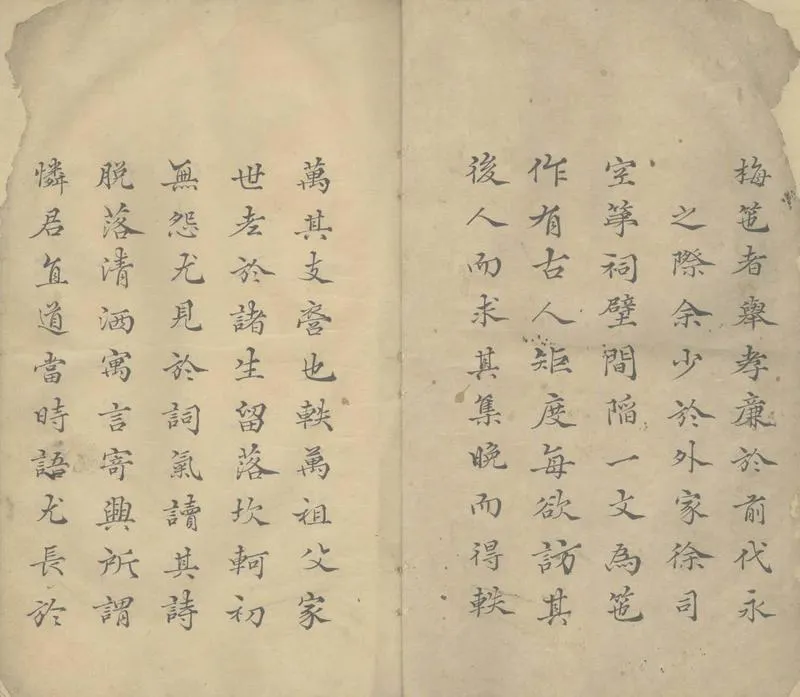 梅笆者舉孝廉於前代永
之際余少於外家徐司
空第祠壁間陷一文為笆
作有古人矩度每欲訪其
後人而求其集晚而得軼
萬其支裔也軼萬祖父家
世老於諸生留落坎軻初
無怨尤見於詞氣讀其詩
脱落清洒寓言寄興所謂
憐君直道當時語尤長於